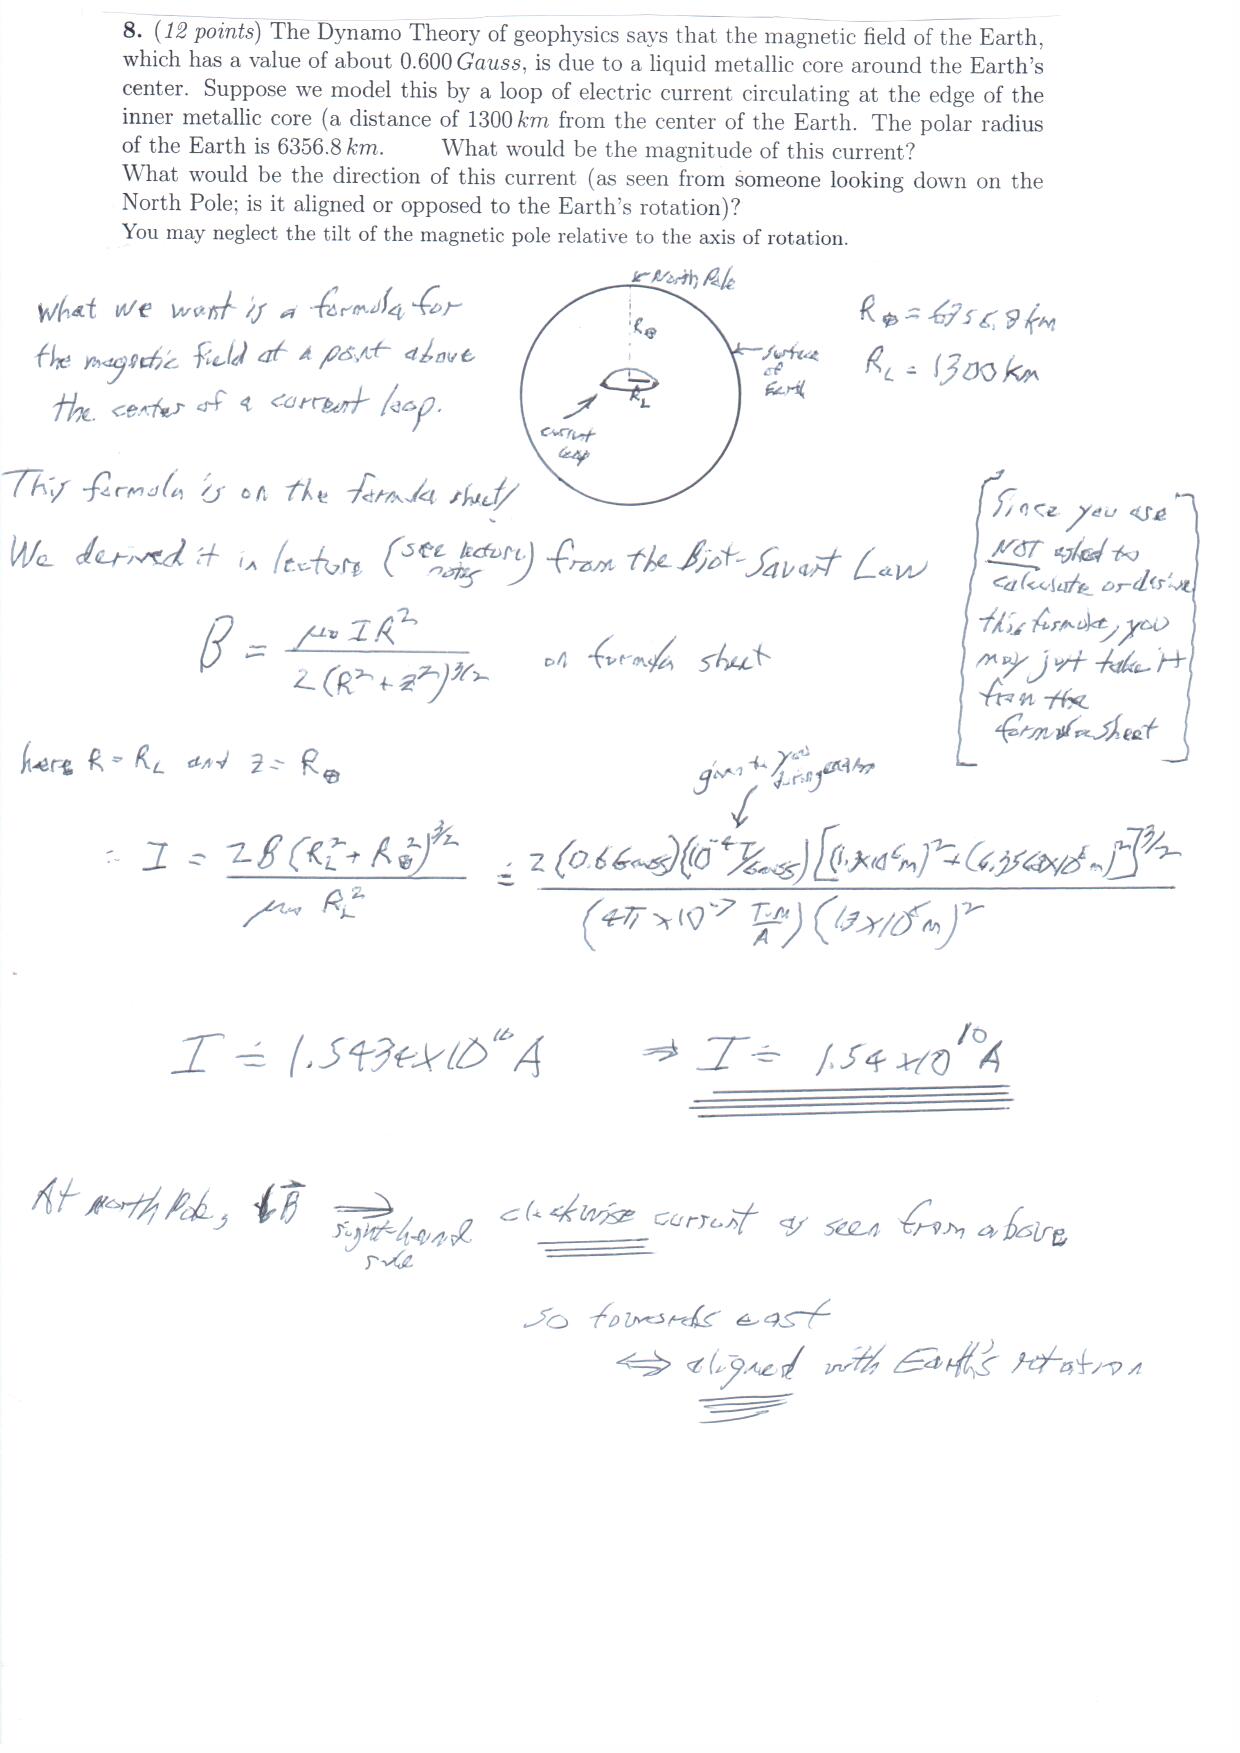 8. (12 points) The Dynamo Theory of geophysics says that the magnetic field of the Earth,
which has a value of about 0.600 Gauss, is due to a liquid metallic core around the Earth's
center. Suppose we model this by a loop of electric current circulating at the edge of the
inner metallic core (a distance of 1300 km from the center of the Earth. The polar radius
of the Earth is 6356.8 km. What would be the magnitude of this current?
What would be the direction of this current (as seen from someone looking down on the
North Pole; is it aligned or opposed to the Earth's rotation)?
You may neglect the tilt of the magnetic pole relative to the axis of rotation.
North Pole
What we want is a formula for
the magnetic field at a point above
the center of a current loop.
R⊕
R_L
surface
of
Earth
current
loop
R⊕ = 6356.8 km
R_L = 1300 km
This formula is on the formula sheet/
We derived it in lecture (see lecture notes) from the Biot-Savart Law
[Since you are
NOT asked to
calculate or derive
this formula, you
may just take it
from the
formula sheet]
B = μ₀ I R² / 2 (R² + z²)^3/2 on formula sheet
here R = R_L and z = R⊕
given to you during exam
∴ I = 2B (R_L² + R⊕²)^3/2 / μ₀ R_L² ≐ 2 (0.6 Gauss)(10⁻⁴ T/Gauss) [(1.3x10⁶ m)² + (6.3568x10⁶ m)²]^3/2 / (4π x 10⁻⁷ T·m/A) (1.3x10⁶ m)²
I ≐ 1.5434x10¹⁰ A ⇒ I ≐ 1.54 x10¹⁰ A
At North Pole, ↓B⃗ ⇒ right-hand rule clockwise current as seen from above
so towards east
⇔ aligned with Earth's rotation